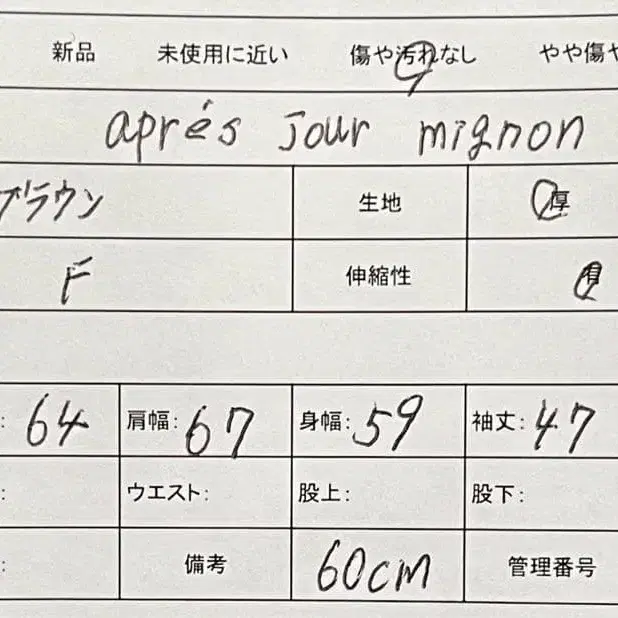 新品 未使用に近い 傷や汚れなし やや傷や
aprés jour mignon
ブラウン 生地 厚
F 伸縮性 有
: 64 肩幅: 67 身幅: 59 袖丈: 47
: ウエスト: 股上: 股下:
: 備考 60cm 管理番号